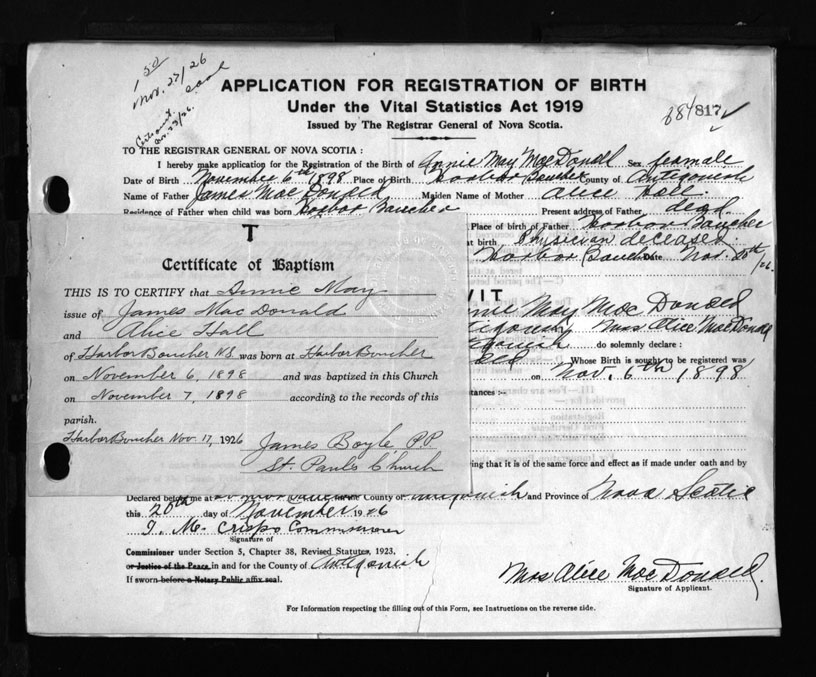 1 50
Nov. 27/26
APPLICATION FOR REGISTRATION OF BIRTH
Under the Vital Statistics Act 1919
Issued by The Registrar General of Nova Scotia.
684817
TO THE REGISTRAR GENERAL OF NOVA SCOTIA:
I hereby make application for the Registration of the Birth of Annie May MacDonald Sex female
Date of Birth November 6th 1898 Place of Birth Harbor Boucher County of Antigonish
Name of Father James MacDonald Maiden Name of Mother Alice Hall
Residence of Father when child was born Harbor Boucher Present address of Father dead
Place of birth of Father Harbor Boucher
at birth Physician deceased.
Harbor Boucher Date Nov. 20th /26
T
Certificate of Baptism
THIS IS TO CERTIFY that Annie May
issue of James MacDonald
and Alice Hall
of Harbor Boucher N.S. was born at Harbor Boucher
on November 6, 1898 and was baptized in this Church
on November 7, 1898 according to the records of this
parish.
Harbor Boucher Nov. 17, 1926 James Boyle P.P.
St. Pauls Church
VIT
nie May MacDonald
tigonish Mrs Alice MacDonald
gonish do solemnly declare :
Whose Birth is sought to be registered was
on Nov. 6th 1898
tances :—
ring that it is of the same force and effect as if made under oath and by
Declared before me at the County of Antigonish and Province of Nova Scotia
this 20th day of November 1926
J. Mc Crispo Commissioner
Signature of
Commissioner under Section 5, Chapter 38, Revised Statutes, 1923.
or Justice of the Peace in and for the County of Antigonish
If sworn before a Notary Public affix seal.
Mrs Alice MacDonald.
Signature of Applicant.
For Information respecting the filling out of this Form, see Instructions on the reverse side.